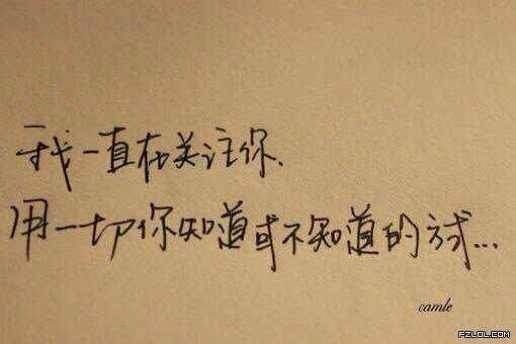 我一直在关注你、
用一切你知道或不知道的方式...
camle
PZLOL.COM